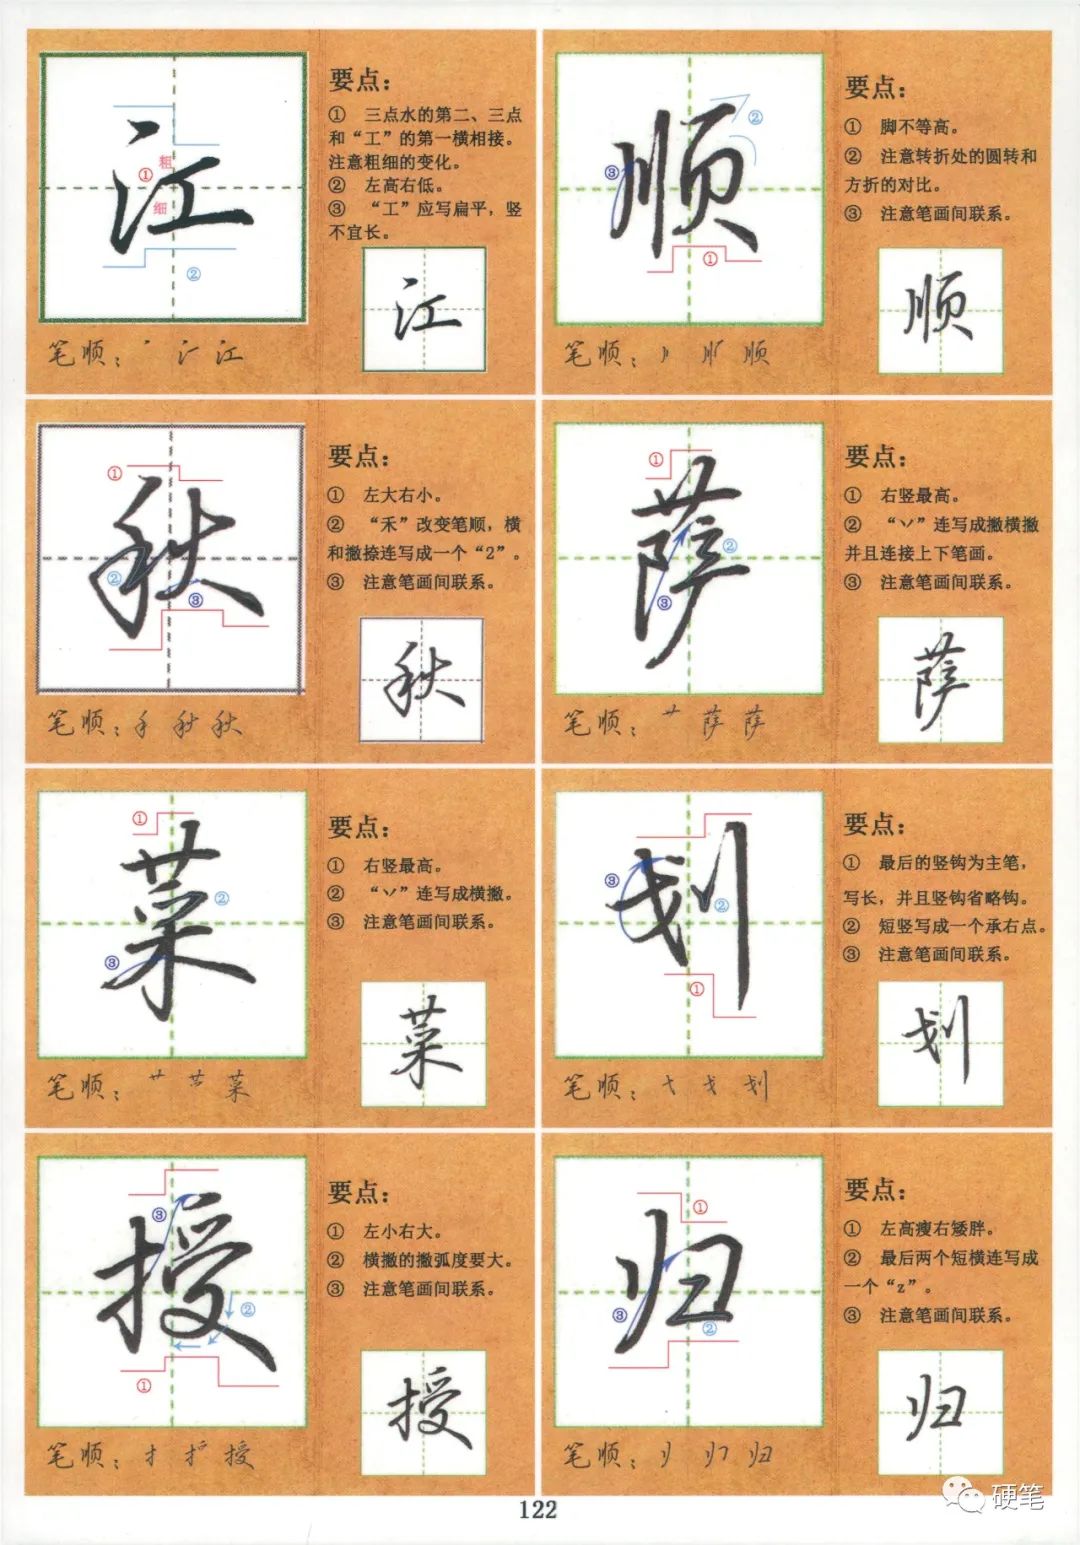 江
粗
①
细
②
要点：
① 三点水的第二、三点
和“工”的第一横相接。
注意粗细的变化。
② 左高右低。
③ “工”应写扁平，竖
不宜长。
江
笔顺： 江
顺
②
③
①
要点：
① 脚不等高。
② 注意转折处的圆转和
方折的对比。
③ 注意笔画间联系。
顺
笔顺： 顺
秋
①
②
③
要点：
① 左大右小。
② “禾”改变笔顺，横
和撇捺连写成一个“2”。
③ 注意笔画间联系。
秋
笔顺： 禾 秋 秋
萨
①
②
③
要点：
① 右竖最高。
② “丷”连写成撇横撇
并且连接上下笔画。
③ 注意笔画间联系。
萨
笔顺： 艹 萨 萨
菜
①
②
③
要点：
① 右竖最高。
② “丷”连写成横撇。
③ 注意笔画间联系。
菜
笔顺： 艹 菜
划
③
②
①
要点：
① 最后的竖钩为主笔，
写长，并且竖钩省略钩。
② 短竖写成一个承右点。
③ 注意笔画间联系。
划
笔顺： 戈 划
授
③
②
①
要点：
① 左小右大。
② 横撇的撇弧度要大。
③ 注意笔画间联系。
授
笔顺： 扌 授
归
①
③
②
要点：
① 左高瘦右矮胖。
② 最后两个短横连写成
一个“z”。
③ 注意笔画间联系。
归
笔顺： 归
122
硬笔